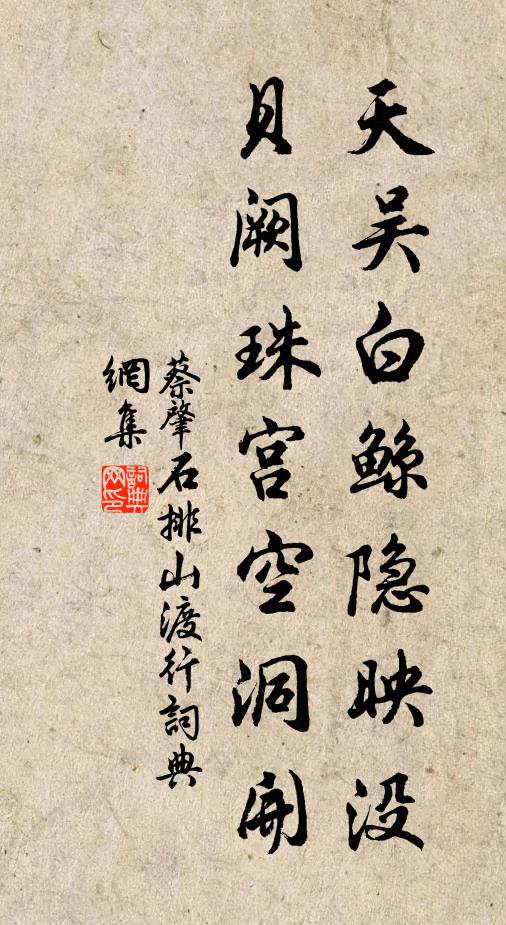 天吴白鲸隐映没
贝阙珠宫空洞开
蔡肇石排山渡行詞典
網集
詞典网印